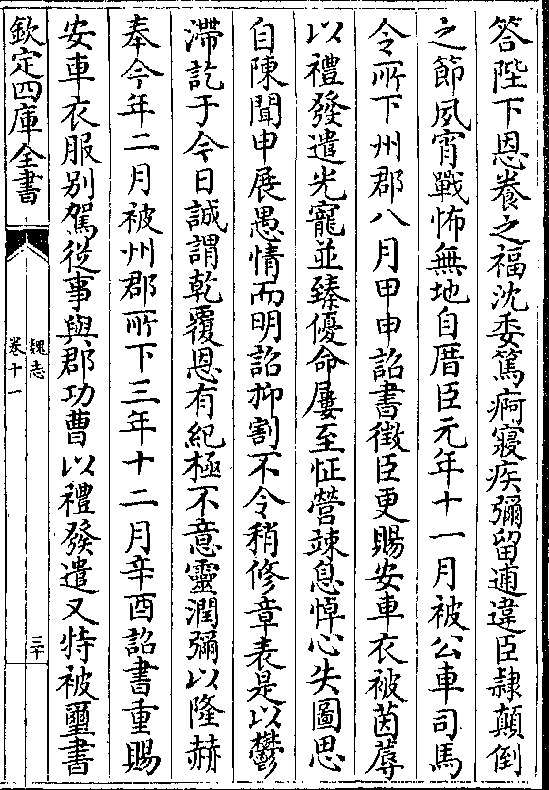 答陛下恩養之福沈委篤痾寢疾彌留逋違臣隸顛倒
之節夙宵戰怖無地自厝臣元年十一月被公車司馬
令所下州郡八月甲申詔書徵臣更賜安車衣被茵蓐
以禮發遣光寵並臻優命屢至怔營竦息悼心失圖思
自陳聞申展愚情而明詔抑割不令稍修章表是以鬱
滯訖于今日誠謂乾覆恩有紀極不意靈潤彌以隆赫
奉今年二月被州郡所下三年十二月辛酉詔書重賜
安車衣服别駕從事與郡功曹以禮發遣又特被璽書
欽定四庫全書
魏志
卷十一
三十